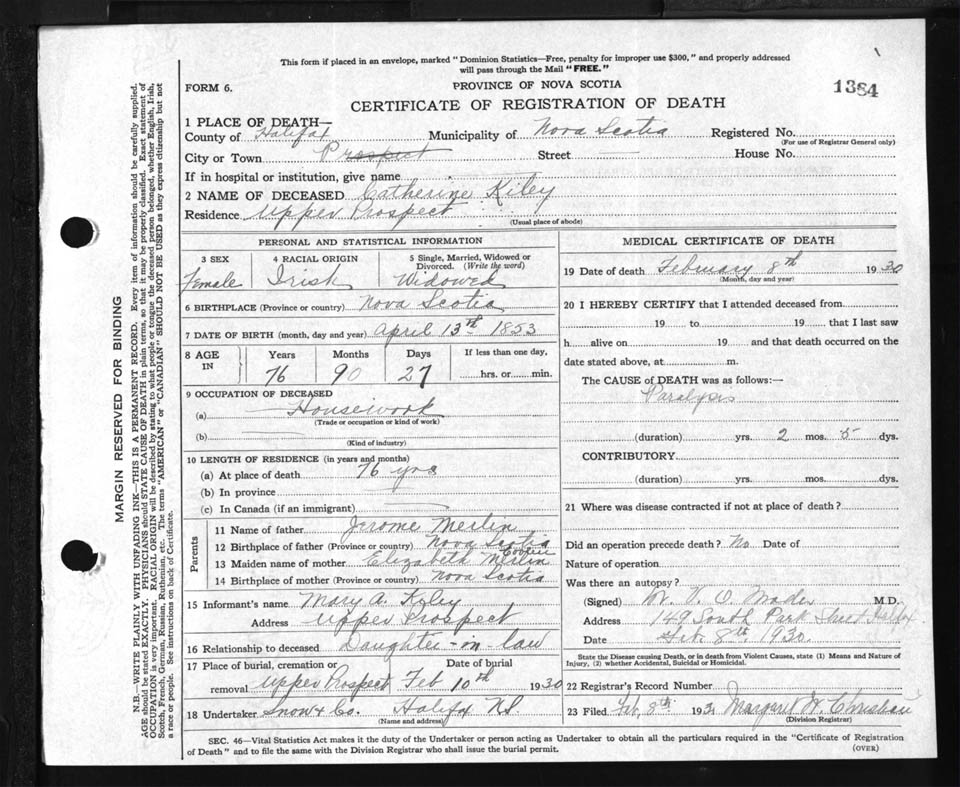 This form if placed in an envelope, marked "Dominion Statistics—Free, penalty for improper use $300," and properly addressed
will pass through the Mail "FREE."
FORM 6.
PROVINCE OF NOVA SCOTIA
1384
CERTIFICATE OF REGISTRATION OF DEATH
1 PLACE OF DEATH—
County of Halifax Municipality of Nova Scotia Registered No.
(For use of Registrar General only)
City or Town Prospect Street House No.
If in hospital or institution, give name
2 NAME OF DECEASED Catherine Kiley
Residence Upper Prospect
(Usual place of abode)
PERSONAL AND STATISTICAL INFORMATION
3 SEX 4 RACIAL ORIGIN 5 Single, Married, Widowed or
Divorced. (Write the word)
Female Irish Widowed
6 BIRTHPLACE (Province or country) Nova Scotia
7 DATE OF BIRTH (month, day and year) April 13th 1853
8 AGE IN Years Months Days If less than one day,
76 90 27 hrs. or min.
9 OCCUPATION OF DECEASED
(a) Housework
(Trade or occupation or kind of work)
(b)
(Kind of industry)
10 LENGTH OF RESIDENCE (in years and months)
(a) At place of death 76 yrs
(b) In province
(c) In Canada (if an immigrant)
Parents
11 Name of father Jerome Merlin
12 Birthplace of father (Province or country) Nova Scotia
13 Maiden name of mother Elizabeth Merlin
14 Birthplace of mother (Province or country) Nova Scotia
15 Informant's name Mary A. Kiley
Address Upper Prospect
16 Relationship to deceased Daughter-in law
17 Place of burial, cremation or Date of burial
removal Upper Prospect Feb 10th 1930
18 Undertaker Snow & Co. Halifax NS
(Name and address)
MEDICAL CERTIFICATE OF DEATH
19 Date of death February 8th 1930
(Month, day and year)
20 I HEREBY CERTIFY that I attended deceased from
19 to 19 that I last saw
h alive on 19 and that death occurred on the
date stated above, at m.
The CAUSE of DEATH was as follows:—
Paralysis
(duration) yrs. 2 mos. 5 dys.
CONTRIBUTORY
(duration) yrs. mos. dys.
21 Where was disease contracted if not at place of death?
Did an operation precede death? No Date of
Nature of operation
Was there an autopsy?
(Signed) W. V. O. Mader M.D.
Address 149 South Park Street Halifax
Date Feb. 8th 1930.
State the Disease causing Death, or in death from Violent Causes, state (1) Means and Nature of
Injury, (2) whether Accidental, Suicidal or Homicidal.
22 Registrar's Record Number
23 Filed Feb, 8th Margaret W. Christian
(Division Registrar)
SEC. 46—Vital Statistics Act makes it the duty of the Undertaker or person acting as Undertaker to obtain all the particulars required in the "Certificate of Registration
of Death" and to file the same with the Division Registrar who shall issue the burial permit.
(OVER)
MARGIN RESERVED FOR BINDING
N.B.—WRITE PLAINLY WITH UNFADING INK—THIS IS A PERMANENT RECORD. Every item of information should be carefully supplied.
AGE should be stated EXACTLY. PHYSICIANS should STATE CAUSE OF DEATH in plain terms, so that it may be properly classified. Exact statement of
OCCUPATION is very important. RACIAL ORIGIN will be described by stating to what people or tongue the deceased person belonged, whether English, Irish,
Scotch, French, German, Russian, Ruthenian, etc. The terms "AMERICAN" or "CANADIAN" SHOULD NOT BE USED as they express citizenship but not
a race or people. See instructions on back of Certificate.